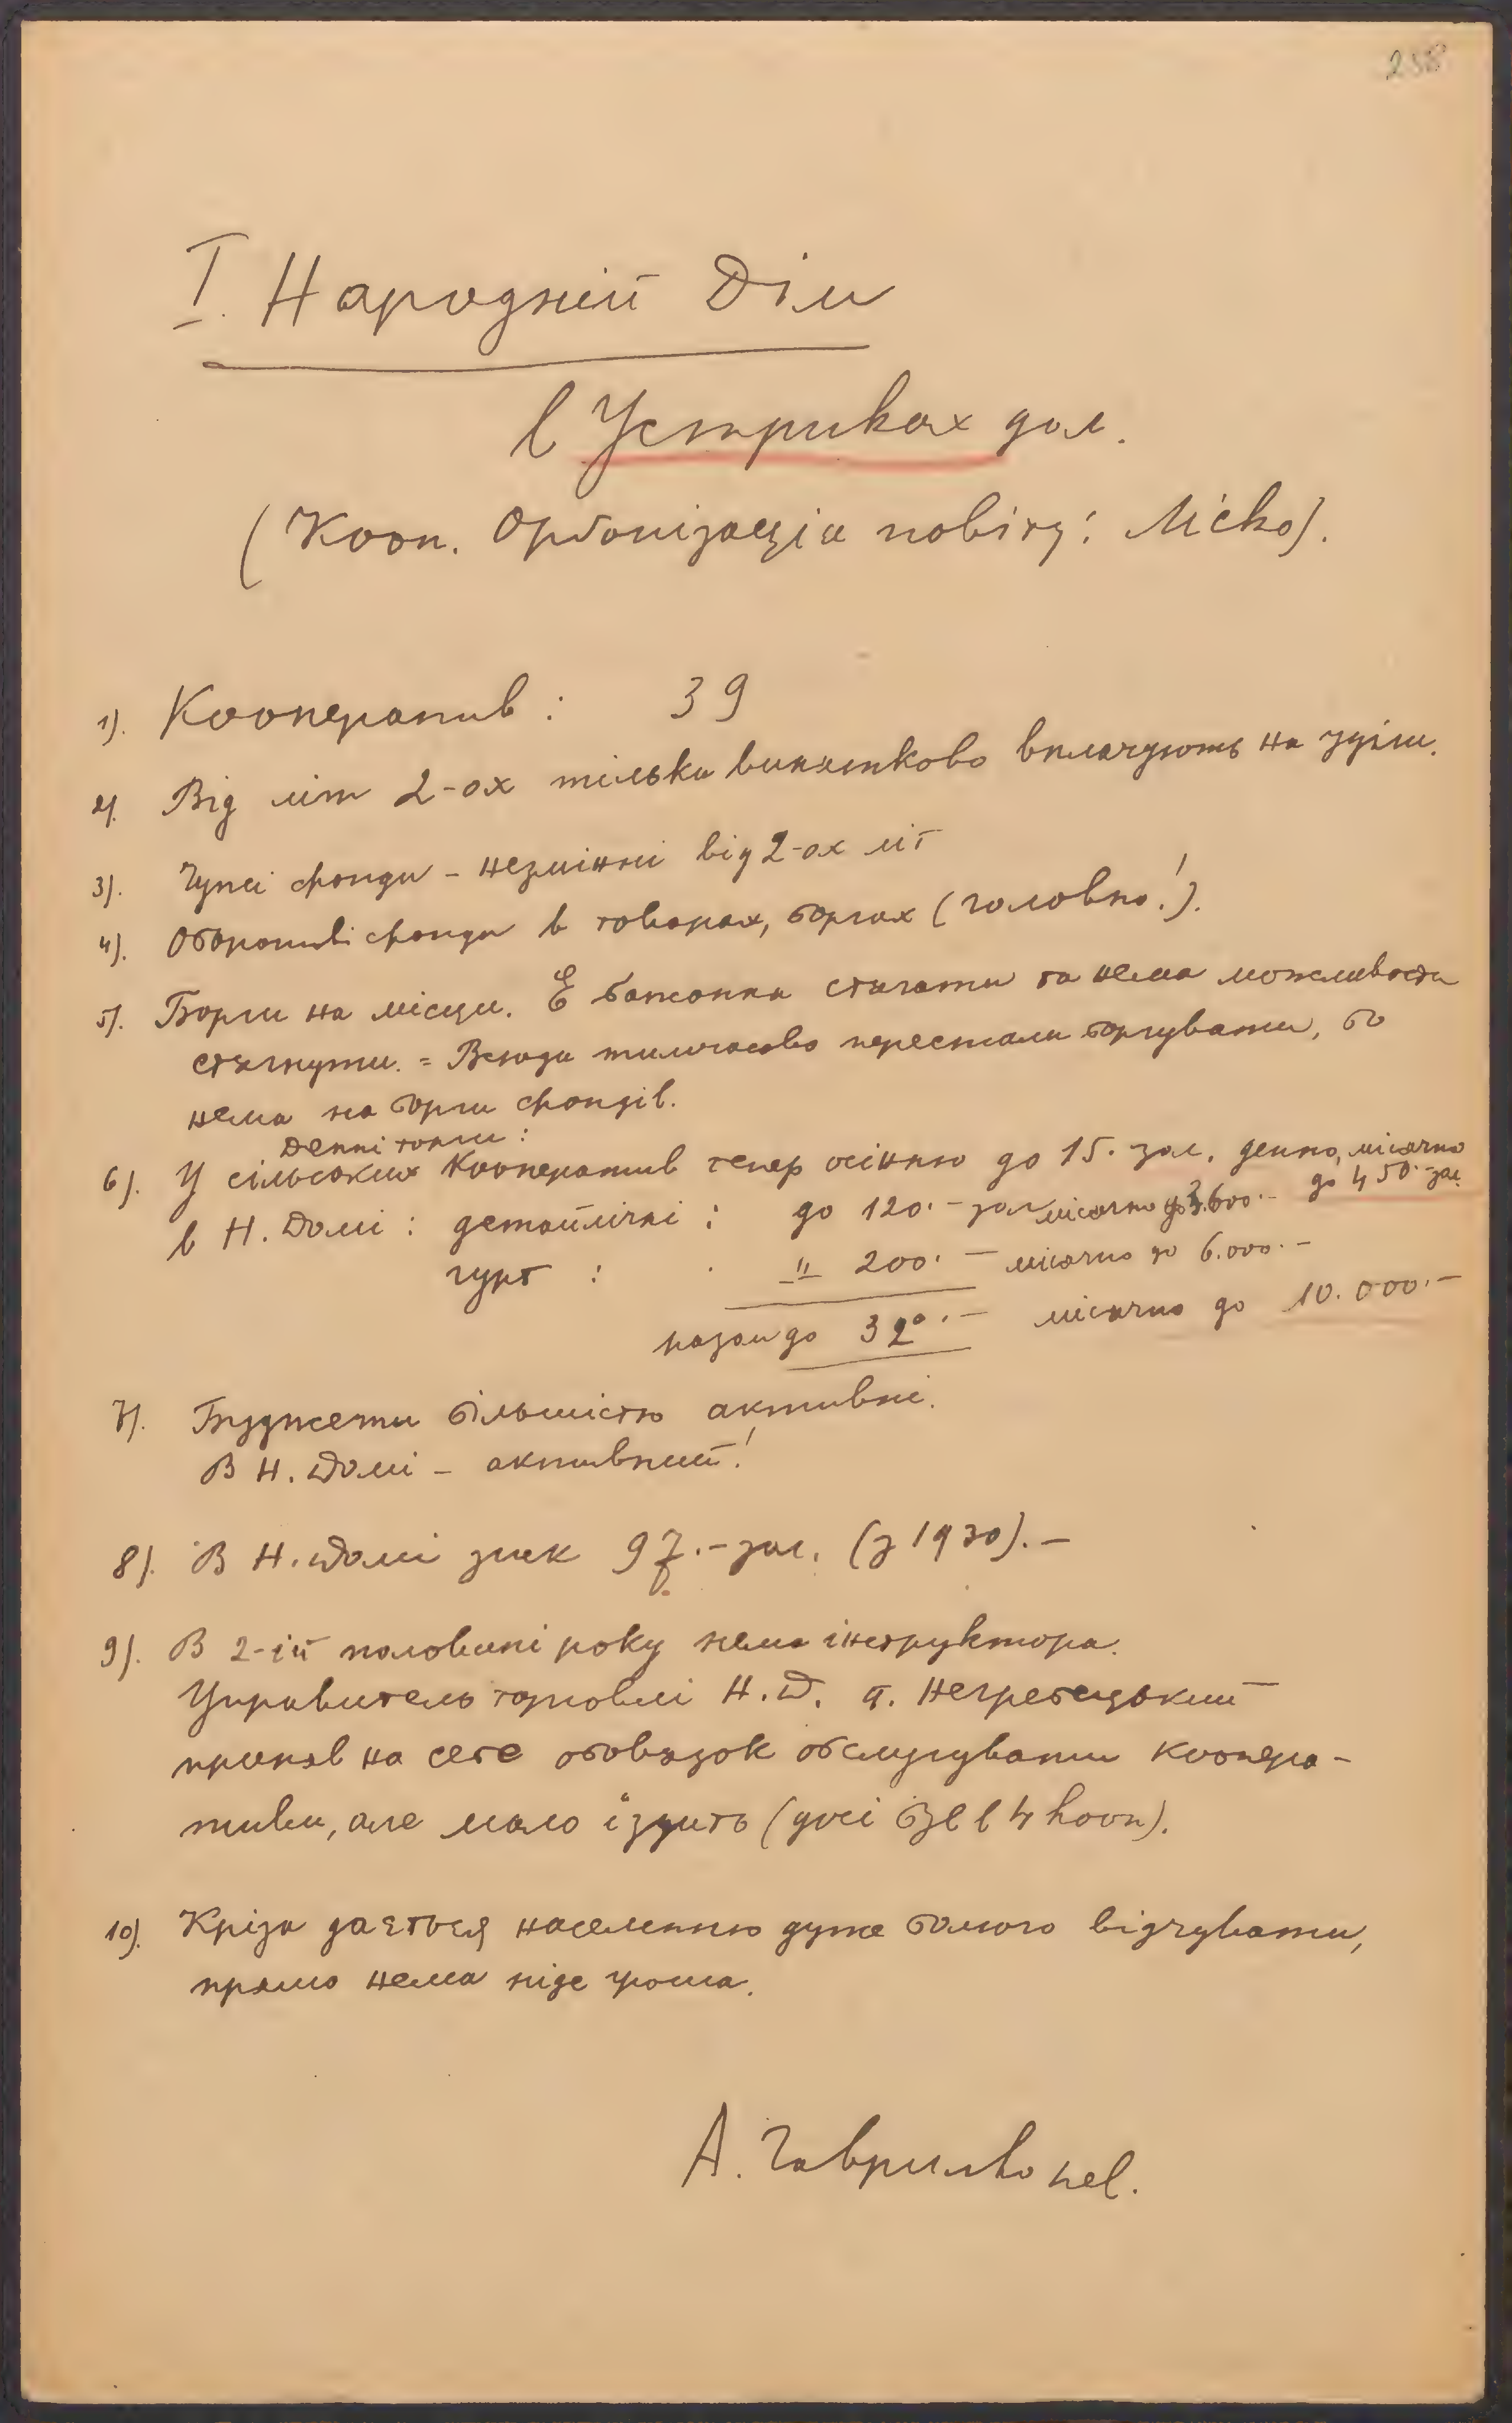 238
I. Народній Дім
в Устриках дол.
(Кооп. Орґанізація повіту: Лісько).
1). Кооператив: 39
2). Від літ 2-ох тільки винятково вплачують на уділи.
3). Чужі фонди – незмінні від 2-ох літ
4). Оборотові фонди в товарах, боргах (головно!).
5). Борги на місци. Є бажання стягати та нема можливости
стягнути. = Всюди тимчасово перестали боргувати, бо
нема на борги фондів.
Денні торги:
6). У сільських кооператив тепер осінню до 15.- зол. денно, місячно
до 450.- зол.
в Н. Домі: детайлічні: до 120.- зол місячно до 3.600.-
гурт: –"– 200.- – місячно до 6.000.-
разом до 320.- місячно до 10.000.-
7). Буджети більшістю активні.
В Н. Домі – активний!
8). В Н. Домі зиск 97.- зол. (з 1930).-
9). В 2-ій половині року нема інструктора.
Управитель торговлі Н. Д. п. Негребецький
приняв на себе обовязок обслугувати коопера-
тиви, але мало їздить (досі був в 4 кооп).
10). Кріза дається населенню дуже болючо відчувати,
прямо нема ніде гроша.
А. Гаврилко